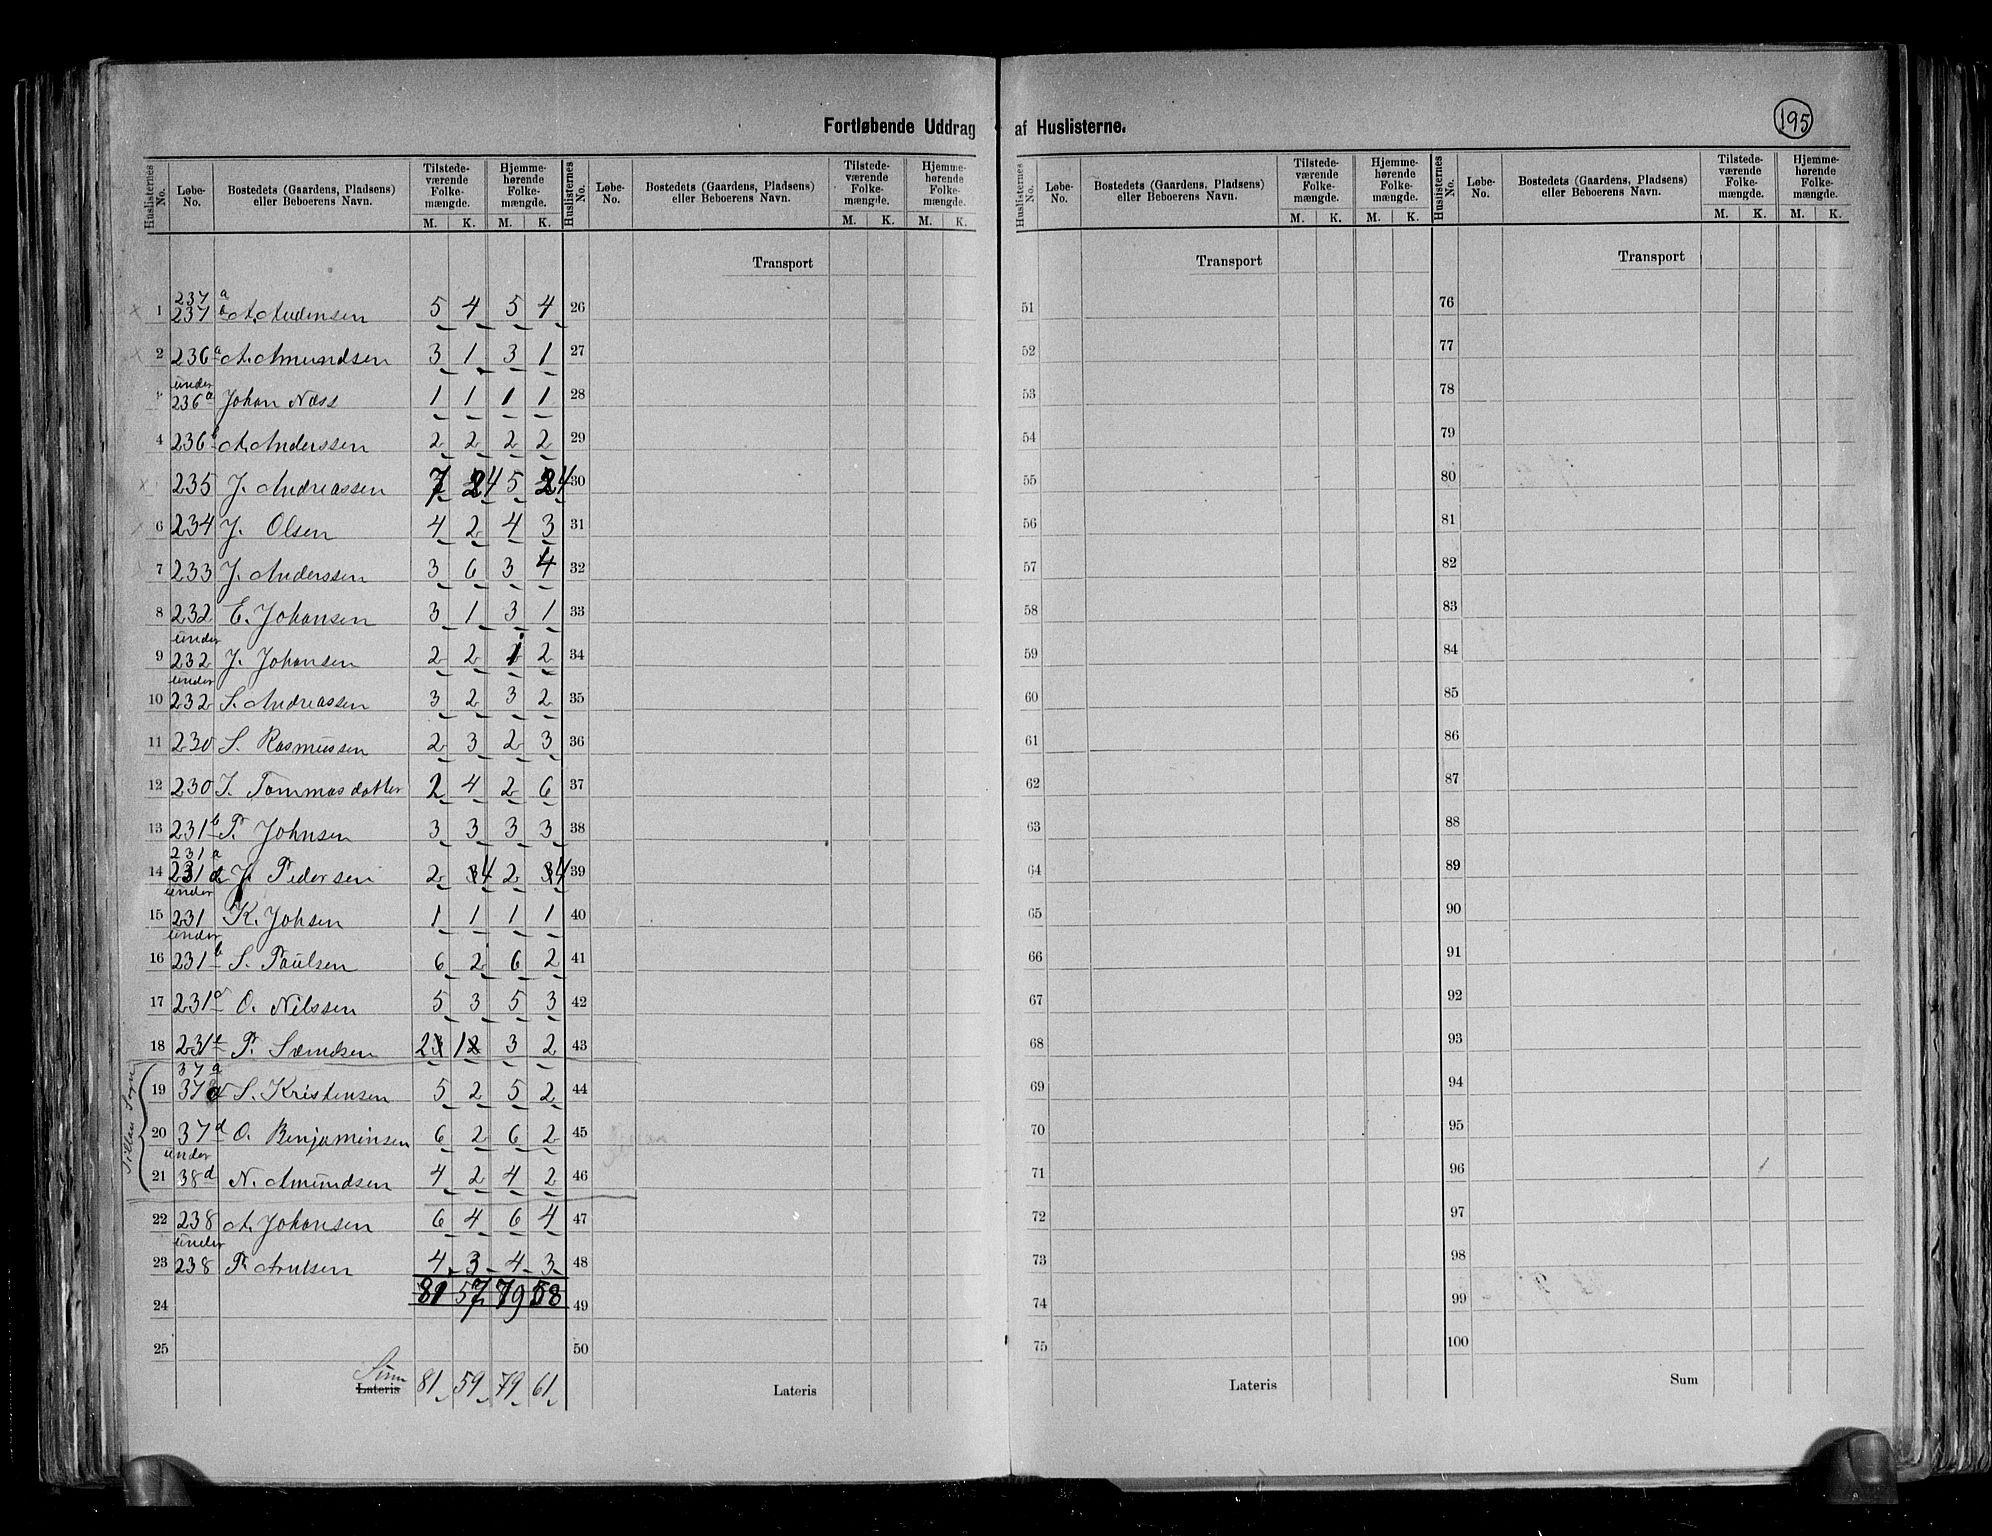 Fortløbende Uddrag af Huslisterne.
195
Huslisternes No. Løbe-No. Bostedets (Gaardens, Pladsens) eller Beboerens Navn. Tilstedeværende Folkemængde. M. K. Hjemmehørende Folkemængde. M. K.
Huslisternes No. Løbe-No. Bostedets (Gaardens, Pladsens) eller Beboerens Navn. Tilstedeværende Folkemængde. M. K. Hjemmehørende Folkemængde. M. K.
Huslisternes No. Løbe-No. Bostedets (Gaardens, Pladsens) eller Beboerens Navn. Tilstedeværende Folkemængde. M. K. Hjemmehørende Folkemængde. M. K.
Huslisternes No. Løbe-No. Bostedets (Gaardens, Pladsens) eller Beboerens Navn. Tilstedeværende Folkemængde. M. K. Hjemmehørende Folkemængde. M. K.
Transport Transport Transport
237 a
1 237 b A. Audensen 5 4 5 4 26 51 76
2 236 a A. Amundsen 3 1 3 1 27 52 77
under
236 a Johan Næss 1 1 1 1 28 53 78
4 236 b A. Anderssen 2 2 2 2 29 54 79
235 J. Andreassen 7 4 5 4 30 55 80
6 234 J. Olsen 4 2 4 3 31 56 81
7 233 J. Anderssen 3 6 3 4 32 57 82
8 232 E. Johansen 3 1 3 1 33 58 83
under
9 232 J. Johansen 2 2 1 2 34 59 84
under
10 232 S. Andreassen 3 2 3 2 35 60 85
11 230 S. Rasmussen 2 3 2 3 36 61 86
12 230 I. Tommasdatter 2 4 2 6 37 62 87
13 231 b P. Johnsen 3 3 3 3 38 63 88
231 a
14 231 d J. Pedersen 2 4 2 4 39 64 89
under
15 231 K. Johsen 1 1 1 1 40 65 90
under
16 231 b S. Paulsen 6 2 6 2 41 66 91
17 231 O. Nilssen 5 3 5 3 42 67 92
18 231 e P. Samdsen 2 1 3 2 43 68 93
37 a
19 37 S. Kristensen 5 2 5 2 44 69 94
20 37 d O. Benjaminsen 6 2 6 2 45 70 95
under
21 38 d N. Amundsen 4 2 4 2 46 71 96
22 238 A. Johansen 6 4 6 4 47 72 97
under
23 238 P. Arntsen 4 3 4 3 48 73 98
24 81 57 79 58 49 74 99
25 50 75 100
Sum
Lateris 81 59 79 61 Lateris Lateris Sum